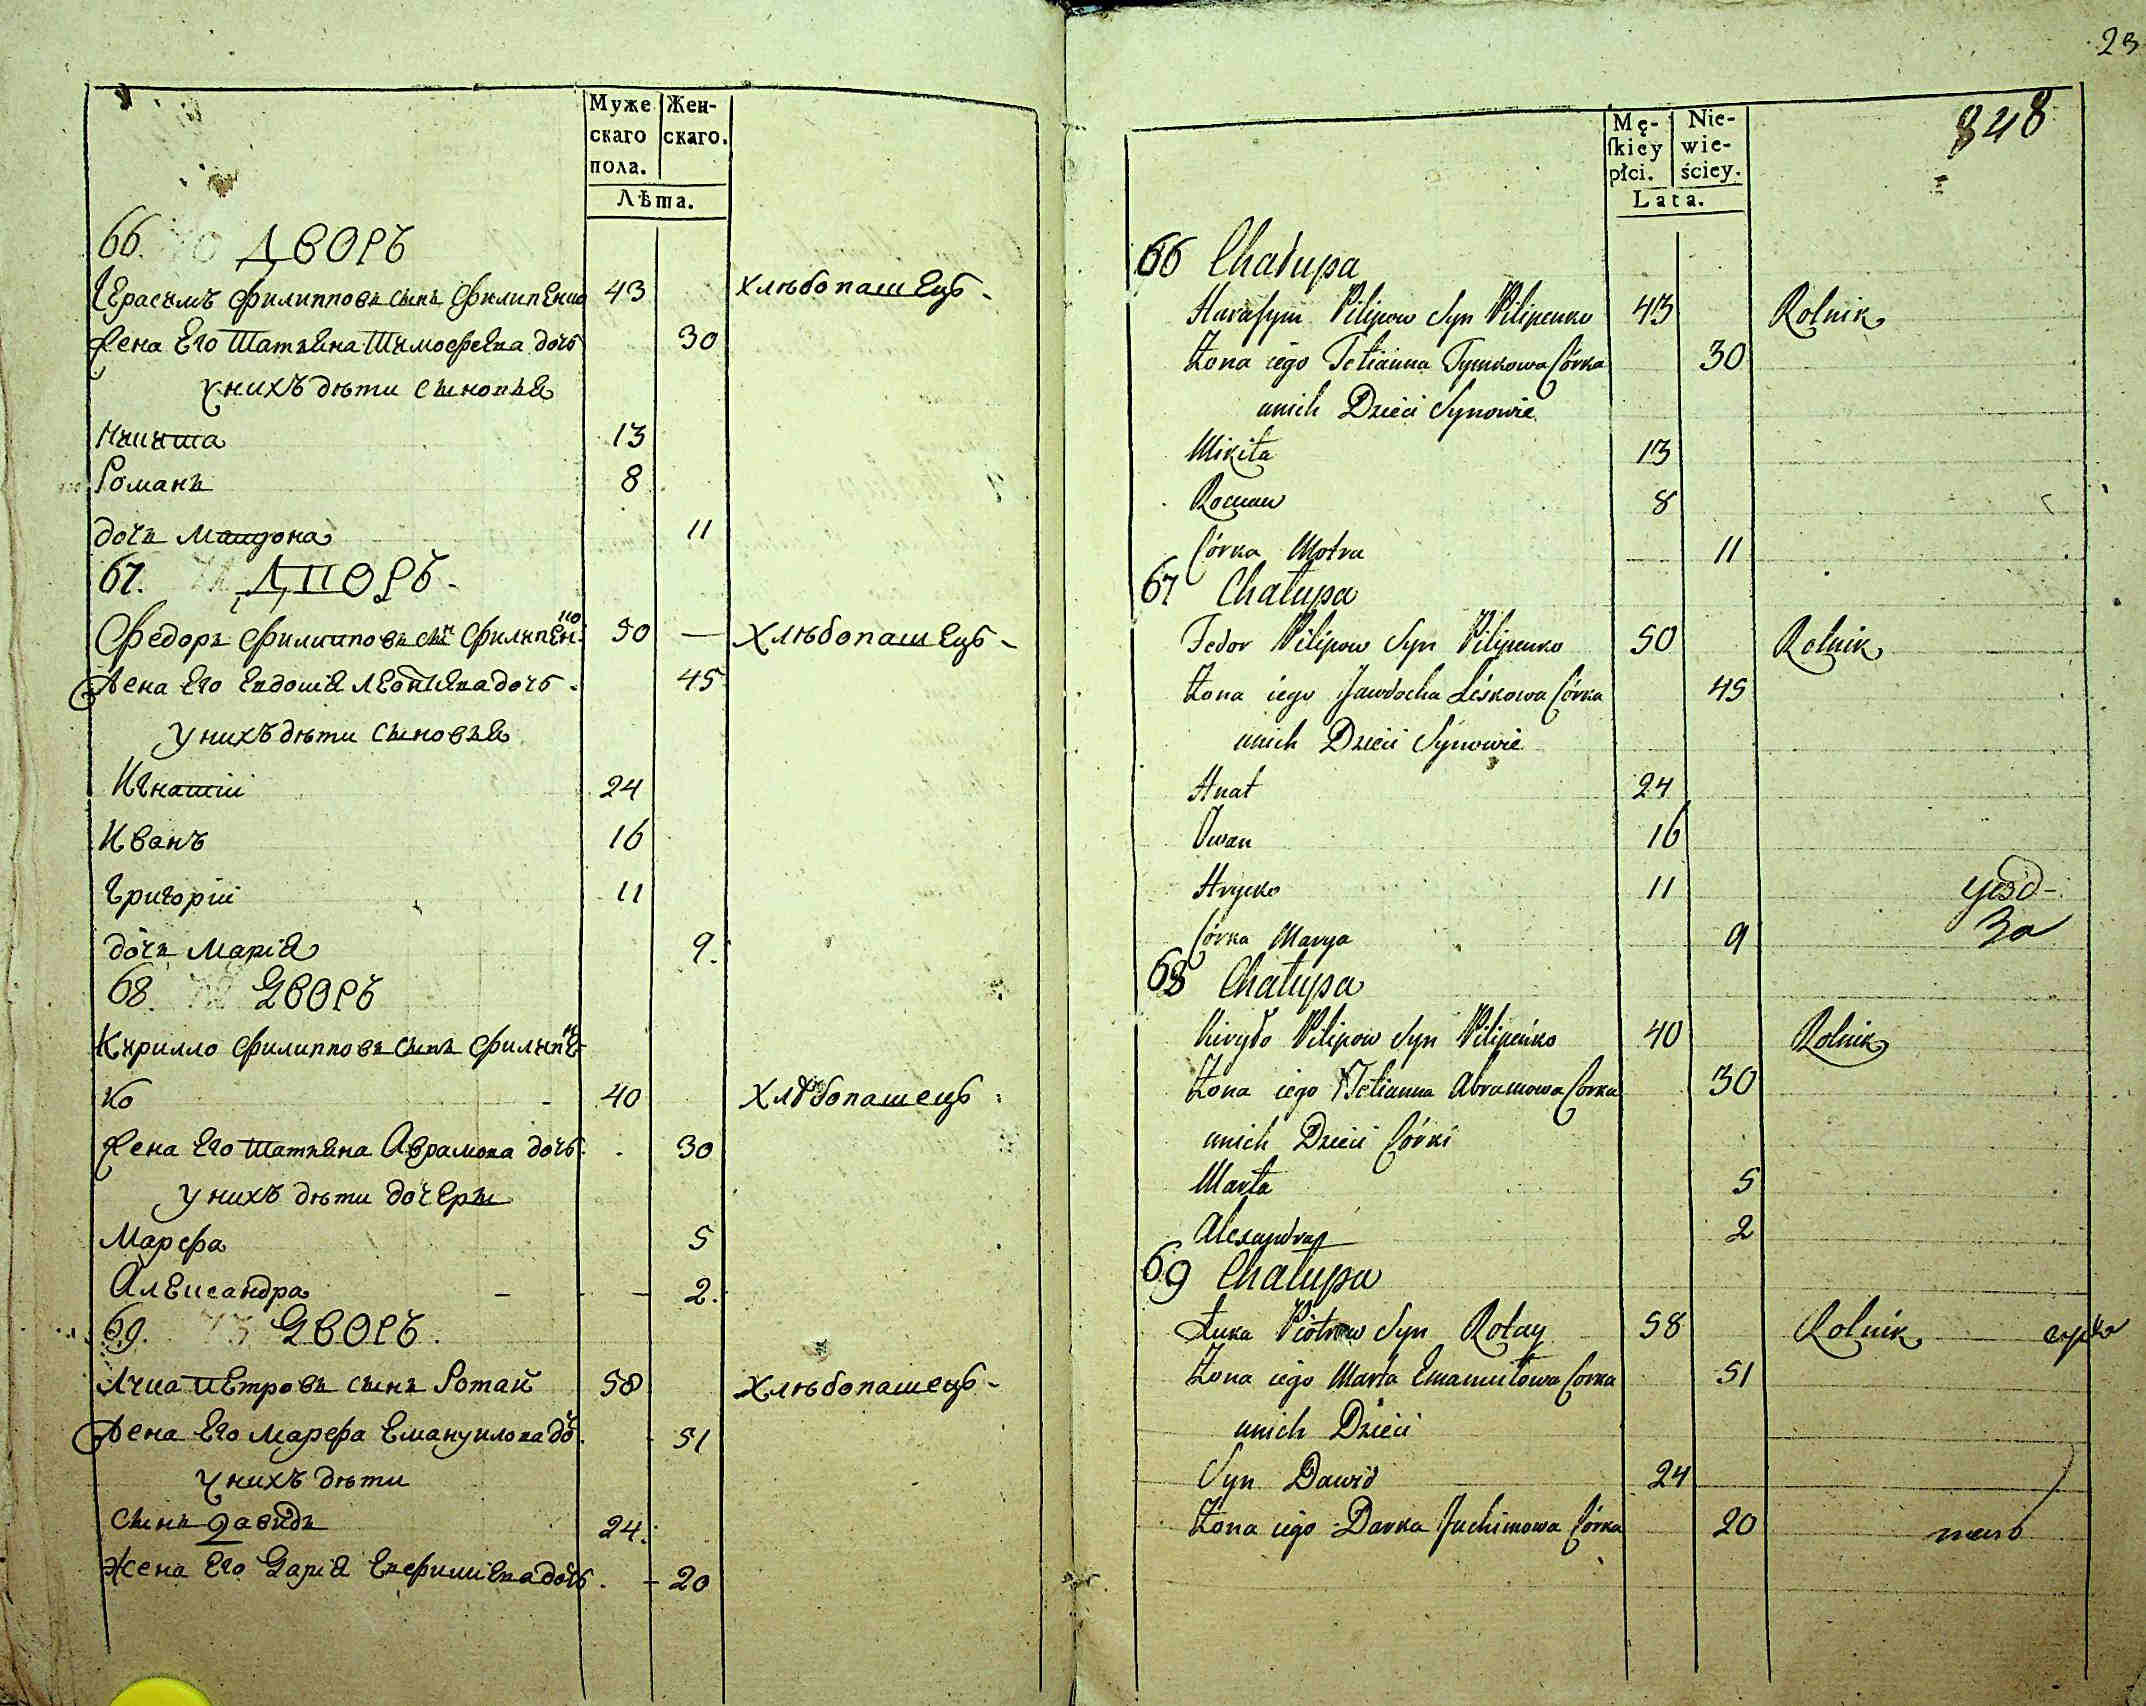 Муже
скаго
пола.
Жен-
скаго.
Лѣта.
66. 70 ДВОРЪ
Герасимъ Филипповъ сынъ Филипенко 43 хлѣбопашецъ -
Жена Его Татьяна Тимофеева дочь 30
у нихъ дѣти сыновья
Никита 13
Романъ 8
дочь Матрона 11
67. ДВОРЪ -
Федоръ Филиповъ сынъ Филипенко 50 — хлѣбопашецъ -
Жена Его Евдокия Леонтьева дочь - 45
у нихъ дѣти сыновья
Игнатій 24
Иванъ 16
Григорій 11
дочь Марія 9.
68. 72 ДВОРЪ
Кирилло Филипповъ сынъ Филипен-
ко - 40 хлѣбопашецъ :
Жена Его Татьяна Аврамова дочь 30
у нихъ дѣти дочери
Марфа 5
Александра - - 2.
69. 73 ДВОРЪ.
Лука Петровъ сынъ Ротай 58 хлѣбопашецъ -
Жена Его Марфа Емануилова доч. 51
у нихъ дѣти
сынъ Давидъ 24.
Жена Его Дарія Евфиміева дочь. - 20
23
848
Mę-
ſkiey
płci.
Nie-
wie-
ściey.
Lata.
66 Chałupa
Harasym Pilipow Syn Pilipenko 43 Rolnik
Żona iego Tetianna Tymkowa Córka 30
unich Dzieci Synowie
Mikita 13
Roman 8
Córka Motra 11
67 Chałupa
Fedor Pilipow Syn Pilipenko 50 Rolnik
Żona iego Jawdocha Leśkowa Córka 45
unich Dzieci Synowie
Hnat 24
Iwan 16
Hrycko 11 уезд-
Córka Marya 9 за
68 Chałupa
Kiryło Pilipow Syn Pilipenko 40 Rolnik
Żona iego Tetianna Abramowa Corka 30
unich Dzieci Córki
Marta 5
Alexandra 2
69 Chałupa
Łuka Piotrow Syn Rotay 58 Rolnik
Żona iego Marta Emanuiłowa Corka 51
unich Dzieci
Syn Dawid 24
Żona iego Darka Juchimowa Córka 20